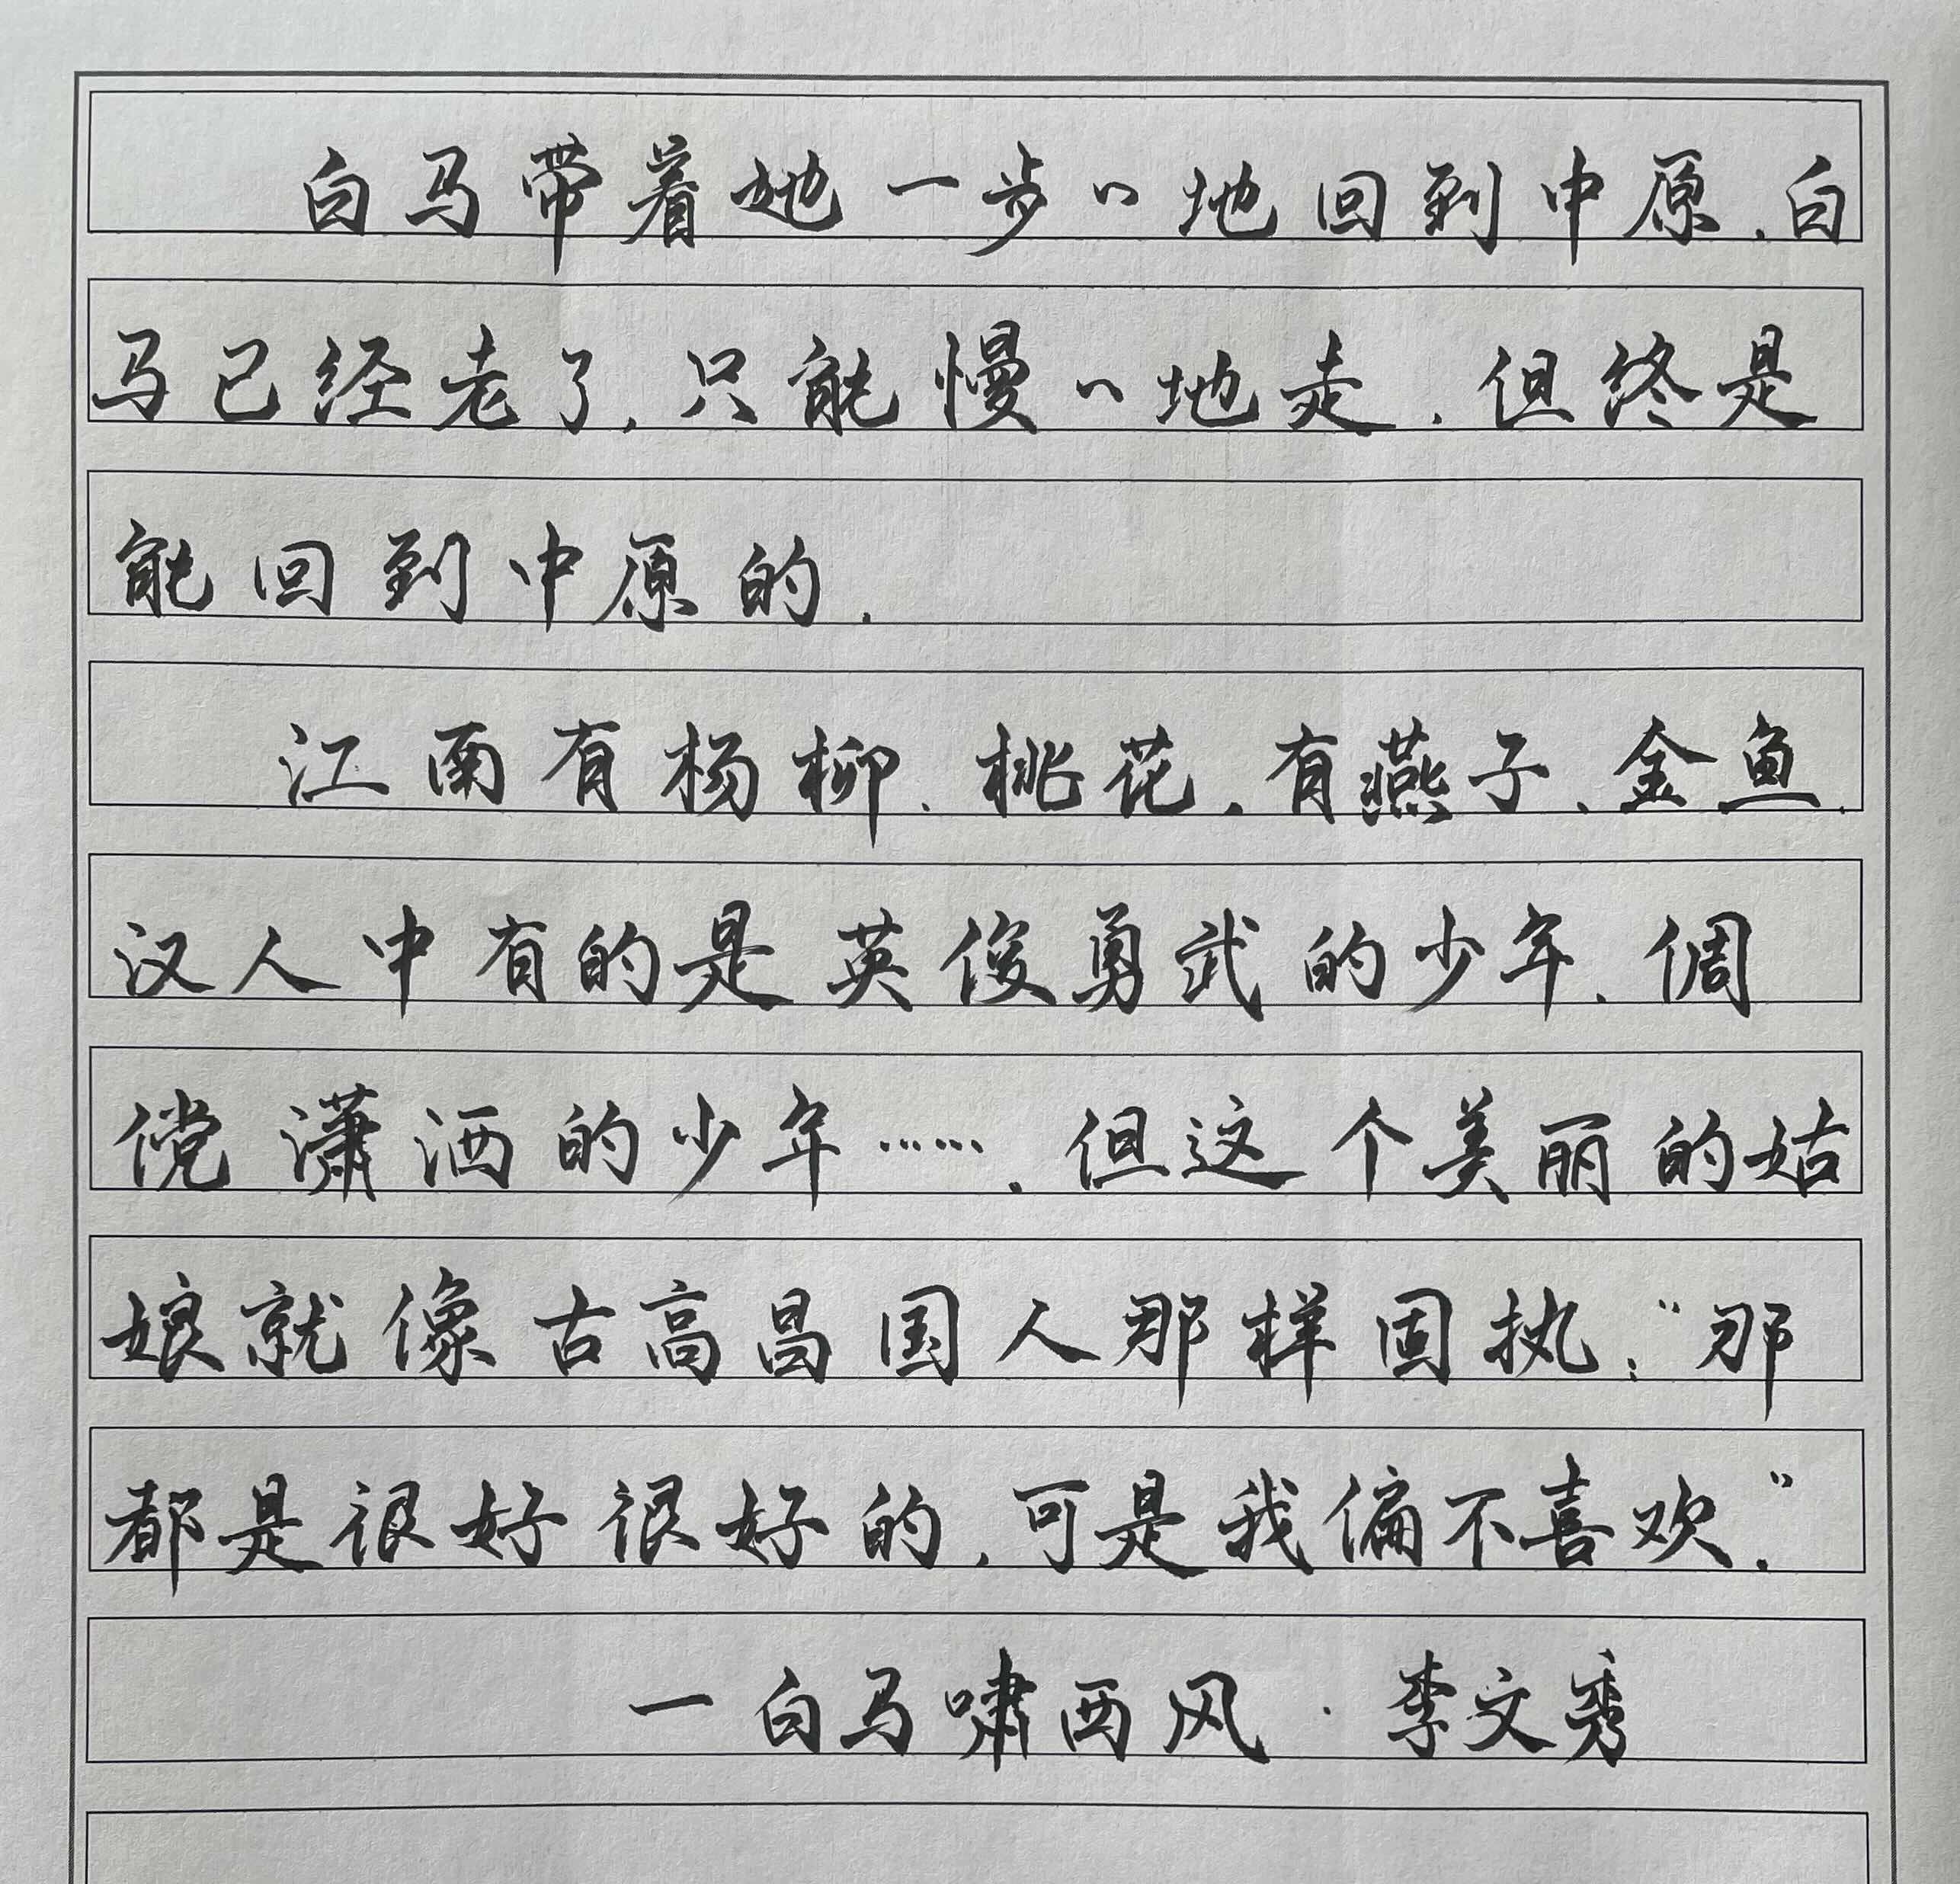 白马带着她一步々地回到中原.白
马已经老了,只能慢々地走.但终是
能回到中原的.
江南有杨柳、桃花,有燕子、金鱼.
汉人中有的是英俊勇武的少年、倜
傥潇洒的少年…….但这个美丽的姑
娘就像古高昌国人那样固执:“那
都是很好很好的,可是我偏不喜欢.”
—白马啸西风·李文秀